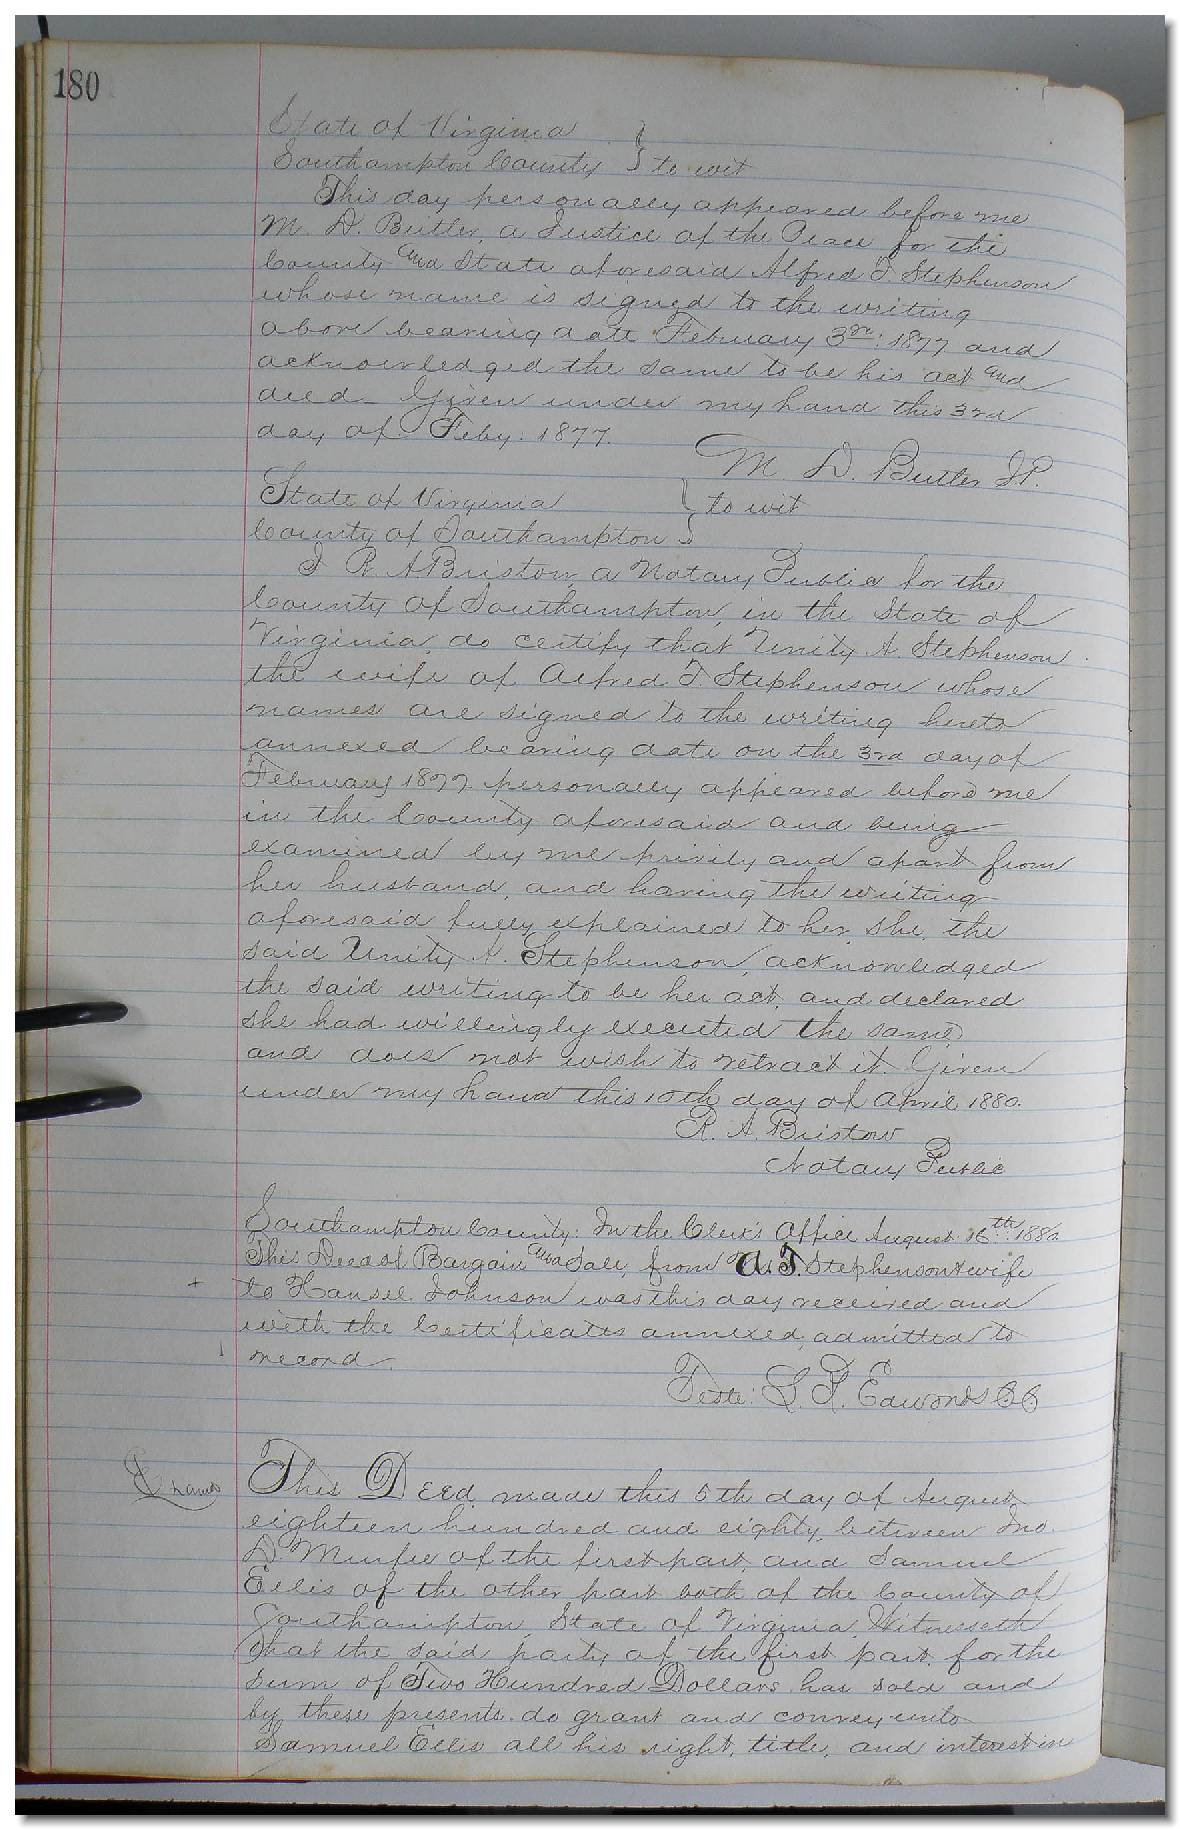 180
State of Virginia
Southampton County } to wit
This day personally appeared before me
M. D. Butler, a Justice of the Peace for the
County and State aforesaid Alfred T. Stephenson
whose name is signed to the writing
above bearing date February 3rd: 1877 and
acknowledged the same to be his act and
deed. Given under my hand this 3rd
day of Feby. 1877.
M. D. Butler J.P.
State of Virginia
} to wit
County of Southampton
I R. A Bristow a Notary Public for the
County of Southampton, in the State of
Virginia, do certify that Unity A. Stephenson
the wife of Alfred T. Stephenson whose
names are signed to the writing hereto
annexed bearing date on the 3rd day of
February 1877 personally appeared before me
in the County aforesaid and being
examined by me privily and apart from
her husband, and having the writing
aforesaid fully explained to her, she, the
said Unity A. Stephenson, acknowledged
the said writing to be her act, and declared
she had willingly executed the same
and does not wish to retract it. Given
under my hand this 10th day of April 1880.
R. A. Bristow
Notary Public
Southampton County: In the Clerk's Office August 16th: 1880.
This Deed of Bargain and Sale, from A. T. Stephenson & wife
to Hansel Johnson was this day received and
with the Certificates annexed, admitted to
record.
Teste: L. R. Edwards CC
This Deed, made this 5th day of August
eighteen hundred and eighty, between Jno.
D. Murfee of the first part, and Samuel
Ellis of the other part both of the County of
Southampton, State of Virginia, Witnesseth
that the said party of the first part, for the
sum of Two Hundred Dollars has sold and
by these presents do grant and convey unto
Samuel Ellis all his right, title, and interest in